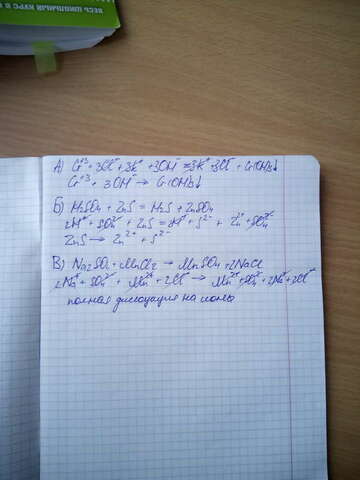 ВЕСЬ ШКОЛЬНЫЙ КУРС В
А) Cr⁺³ + 3Cl⁻ + 3K⁺ + 3OH⁻ = 3K⁺ + 3Cl⁻ + Cr(OH)₃↓
Cr⁺³ + 3OH⁻ → Cr(OH)₃↓
Б) H₂SO₄ + ZnS = H₂S + ZnSO₄
2H⁺ + SO₄²⁻ + ZnS = 2H⁺ + S²⁻ + Zn²⁺ + SO₄²⁻
ZnS → Zn²⁺ + S²⁻
В) Na₂SO₄ + MnCl₂ → MnSO₄ + 2NaCl
2Na⁺ + SO₄²⁻ + Mn²⁺ + 2Cl⁻ → Mn²⁺ + SO₄²⁻ + 2Na⁺ + 2Cl⁻
полная диссоциация на ионы